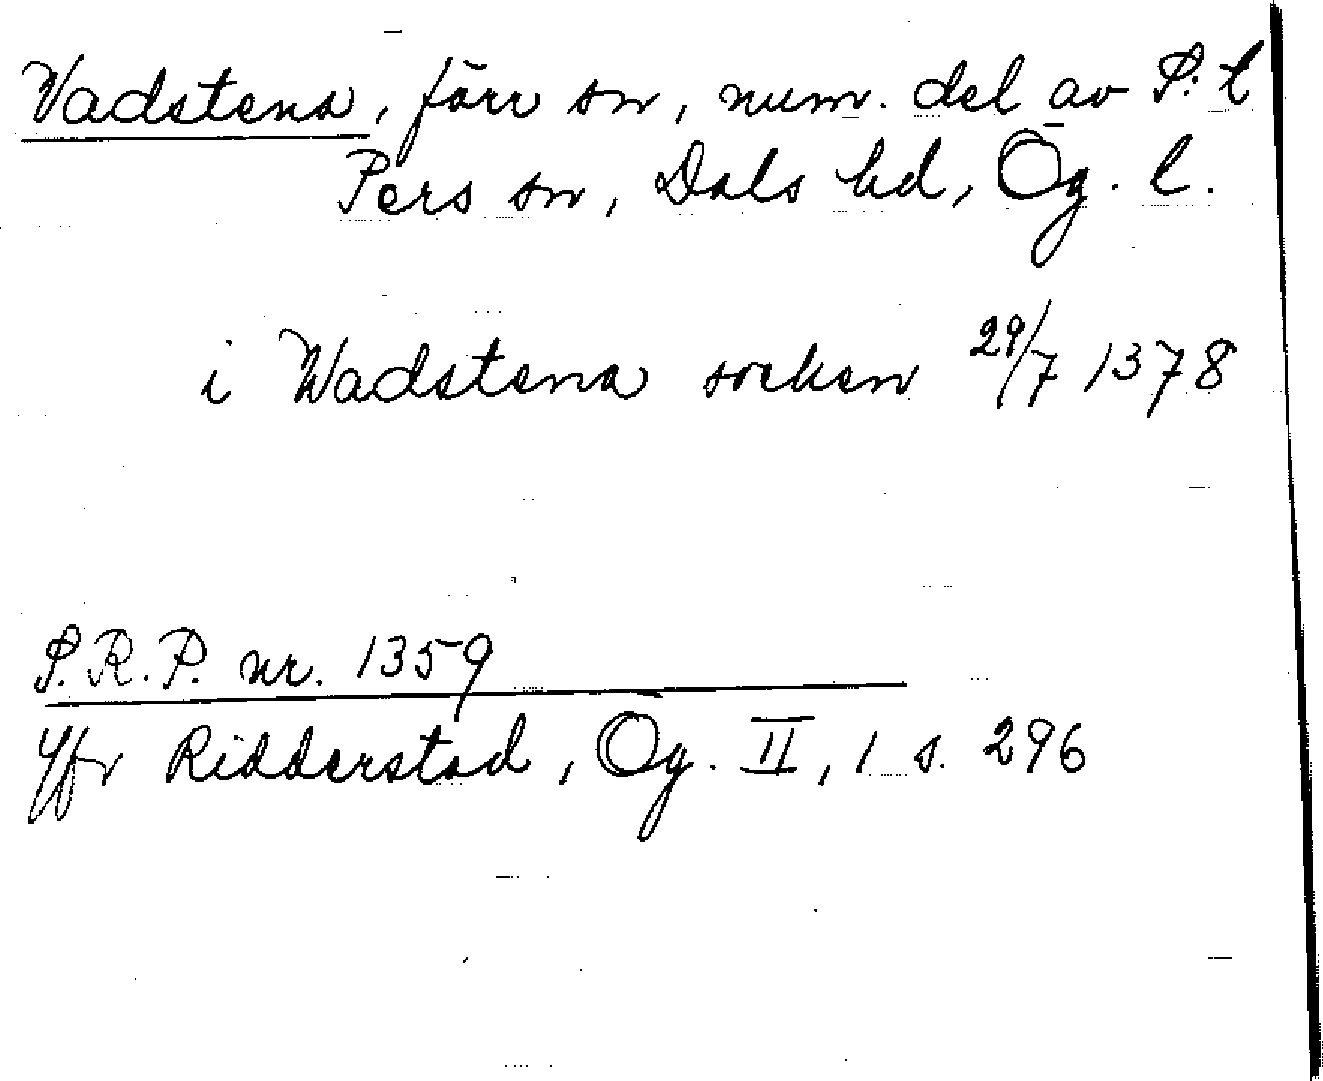 Vadstena, förr sn, num. del av S:t
Pers sn, Dals hd, Ög. l.
i Wadstena socken 29/7 1378
S.R.P. nr. 1359
Jfr Ridderstad, Ög. II, 1 s. 296